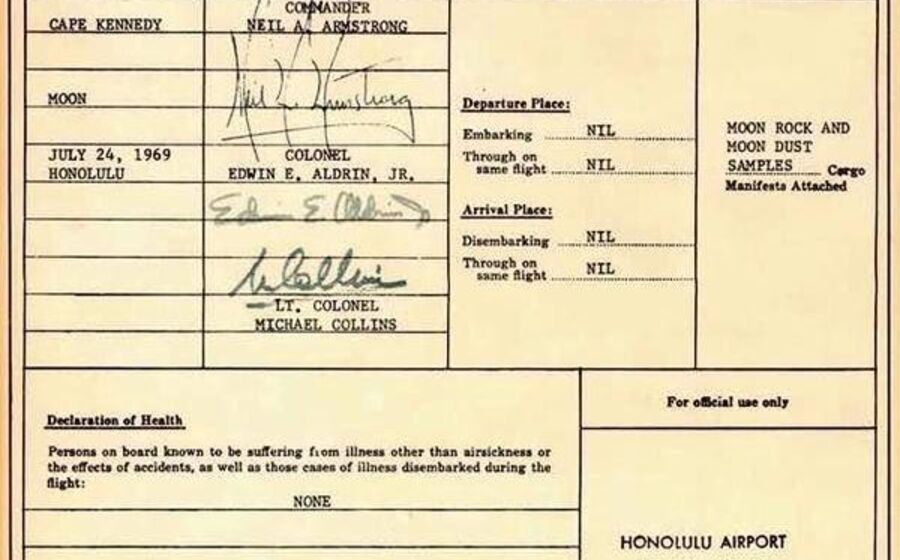 COMMANDER
CAPE KENNEDY
NEIL A. ARMSTRONG
Neil A. Armstrong
MOON
JULY 24, 1969
HONOLULU
COLONEL
EDWIN E. ALDRIN, JR.
Edwin E. Aldrin Jr
M Collins
LT. COLONEL
MICHAEL COLLINS
Departure Place:
Embarking NIL
Through on
same flight NIL
Arrival Place:
Disembarking NIL
Through on
same flight NIL
MOON ROCK AND
MOON DUST
SAMPLES Cargo
Manifests Attached
Declaration of Health
Persons on board known to be suffering from illness other than airsickness or
the effects of accidents, as well as those cases of illness disembarked during the
flight:
NONE
For official use only
HONOLULU AIRPORT